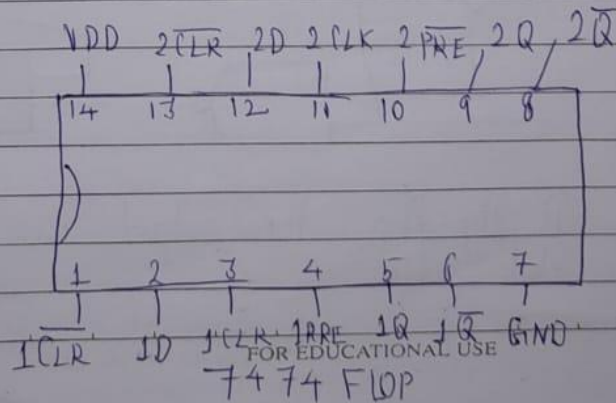 VDD 2C̅L̅R̅ 2D 2CLK 2P̅R̅E̅ 2Q 2Q̅
14 13 12 11 10 9 8
1 2 3 4 5 6 7
1C̅L̅R̅ 1D 1CLR 1PRE 1Q 1Q̅ GND
FOR EDUCATIONAL USE
7474 FLOP